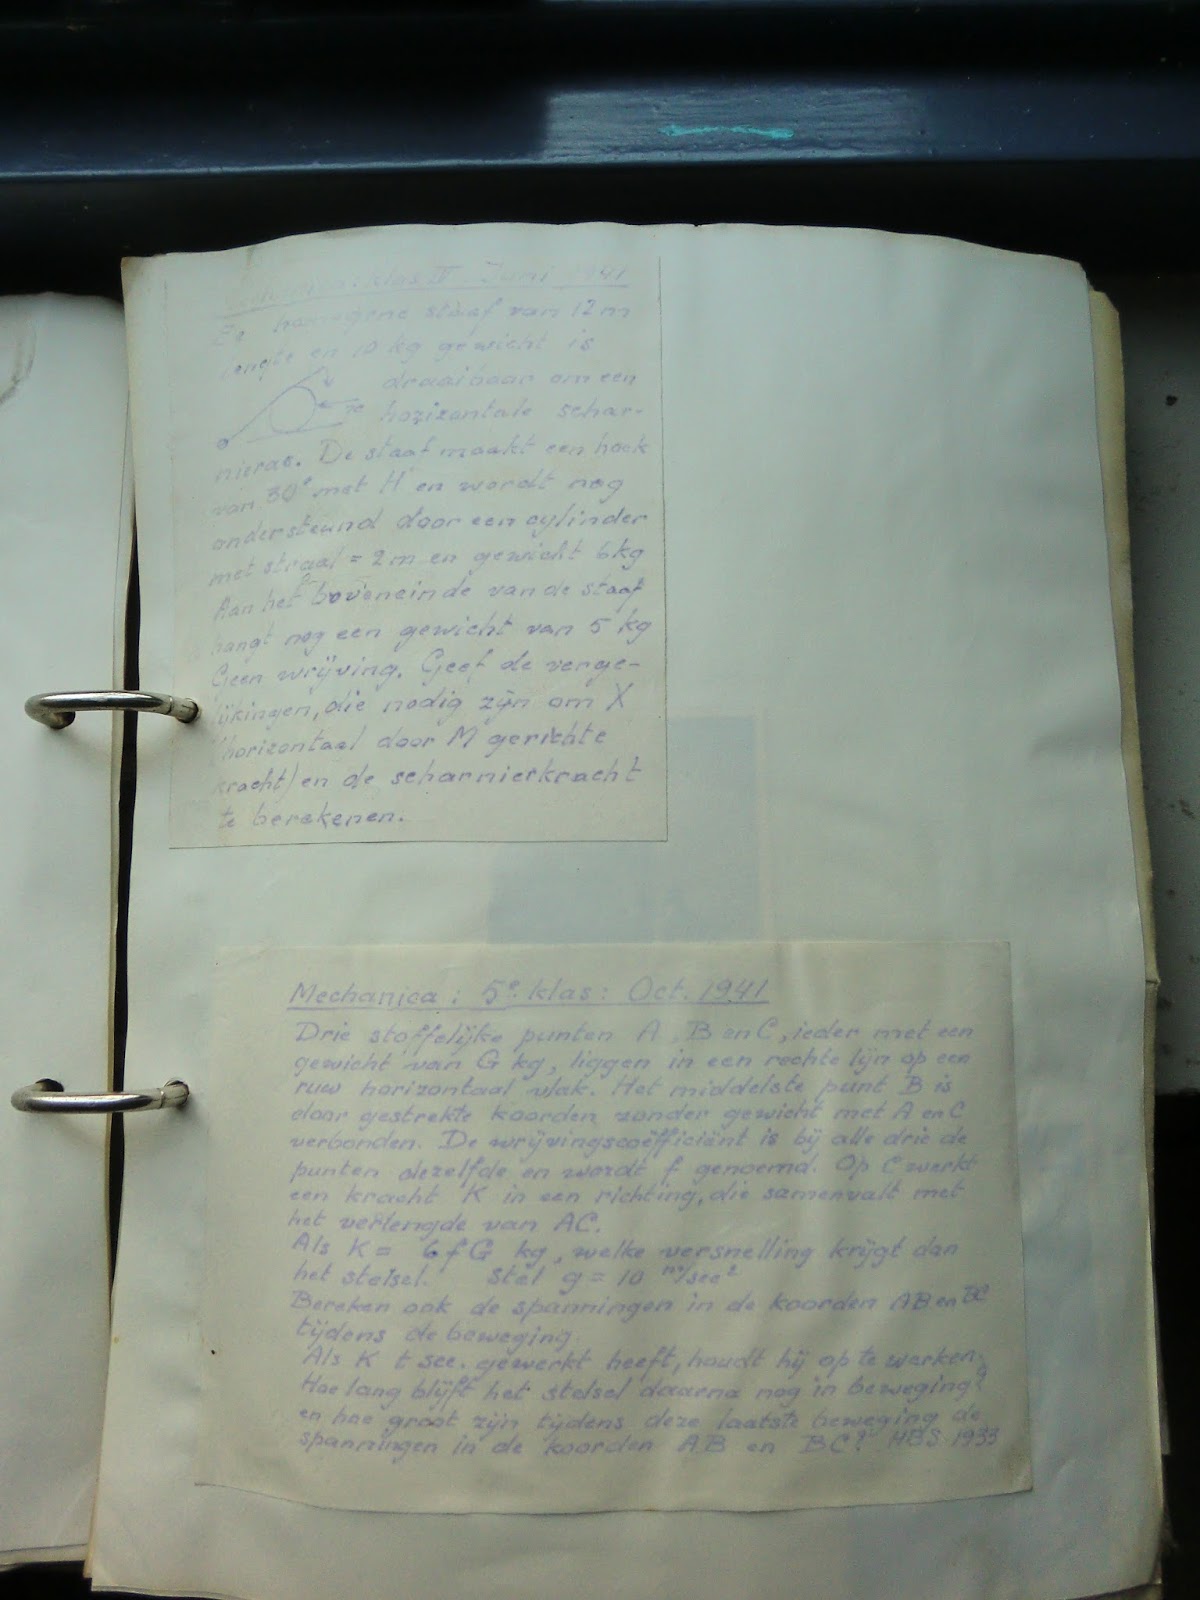 klas IV. Juni 1941
Ee homogene staaf van 12 m
lengte en 10 kg gewicht is
draaibaar om een
horizontale schar-
nieras. De staaf maakt een hoek
van 30° met H en wordt nog
ondersteund door een cylinder
met straal = 2 m en gewicht 6 kg
Aan het boveneinde van de staaf
hangt nog een gewicht van 5 kg
Geen wrijving. Geef de verge-
lijkingen, die nodig zijn om X
(horizontaal door M gerichte
kracht) en de scharnierkracht
te berekenen.
Mechanica: 5e klas: Oct. 1941
Drie stoffelijke punten A, B en C, ieder met een
gewicht van G kg, liggen in een rechte lijn op een
ruw horizontaal vlak. Het middelste punt B is
door gestrekte koorden zonder gewicht met A en C
verbonden. De wrijvingscoëfficiënt is bij alle drie de
punten dezelfde en wordt f genoemd. Op C werkt
een kracht K in een richting, die samenvalt met
het verlengde van AC.
Als K = 6fG kg, welke versnelling krijgt dan
het stelsel. Stel g = 10 m/sec²
Bereken ook de spanningen in de koorden AB en BC
tijdens de beweging.
Als K t sec. gewerkt heeft, houdt hij op te werken.
Hoe lang blijft het stelsel daarna nog in beweging?
en hoe groot zijn tijdens deze laatste beweging de
spanningen in de koorden AB en BC? HBS 1933